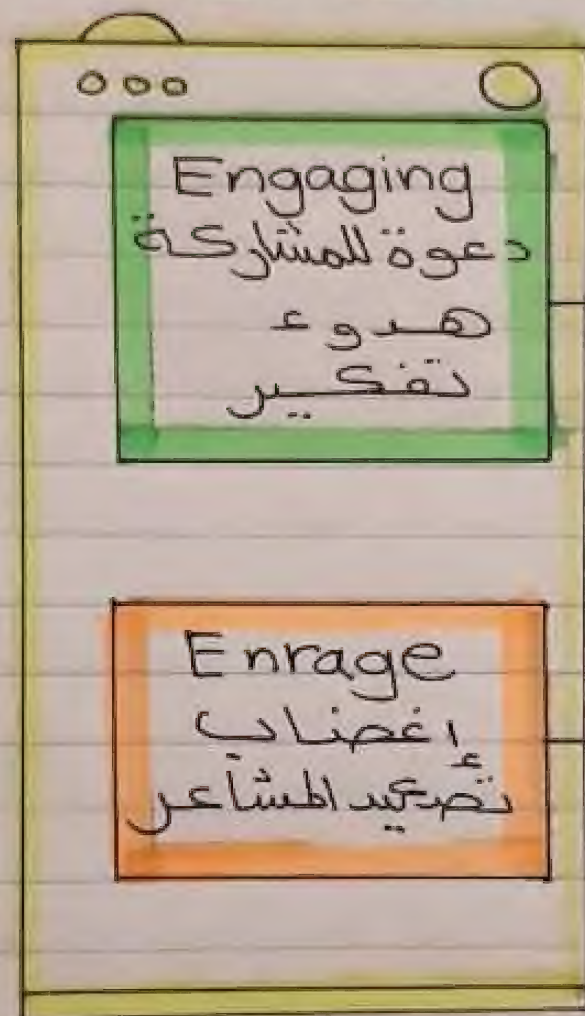 Engaging
دعوة للمشاركة
هدوء
تفكير
Enrage
إغضاب
تصعيد المشاعر